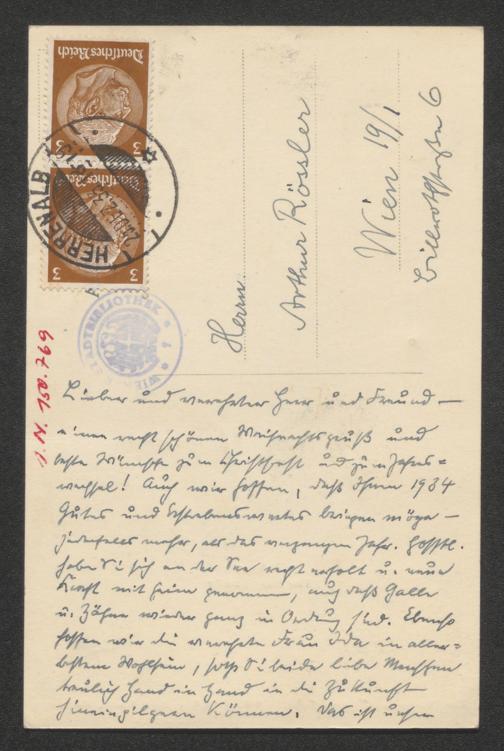 Deutsches Reich
3
Deutsches Reich
3
3
HERRENALB
WIENER STADTBIBLIOTHEK
Herrn
Arthur Rössler
Wien 19/1
Billrothstraße 6
I. N. 150.769
Lieber und verehrter Herr und Freund —
einen recht schönen Weihnachtsgruß und
beste Wünsche zum Christfest und zum Jahres=
wechsel! Auch wir hoffen, daß Ihnen 1934
Gutes und Erstrebenswertes bringen möge —
jedenfalls mehr, als das vergangene Jahr. Hofftl.
haben Sie sich an der See recht erholt u. neue
Kraft mit heim genommen, auch daß Galle
u. Zähne wieder ganz in Ordnung sind. Ebenso
hoffen wir die verehrte Frau Ida in aller=
bestem Wohlsein, sodaß Sie beide liebe Menschen
traulich Hand in Hand in die Zukunft
hineinpilgern können. Das ist unser